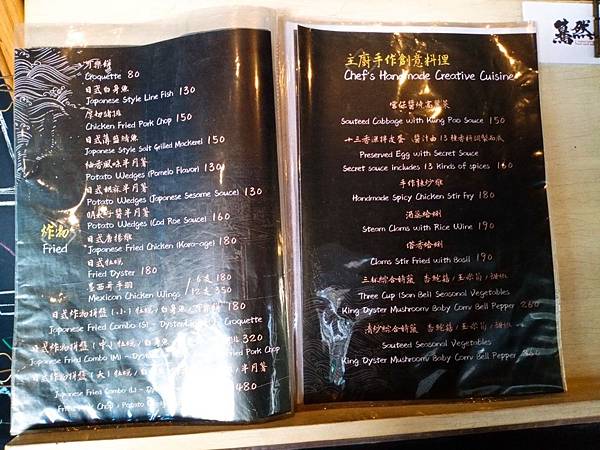 可樂餅
Croquette 80
日式白身魚
Japanese Style Line Fish 130
厚切豬排
Chicken Fried Pork Chop 150
日式薄鹽鯖魚
Japanese Style Salt Grilled Mackerel 150
柚香風味半月薯
Potato Wedges (Pomelo Flavor) 130
日式胡麻半月薯
Potato Wedges (Japanese Sesame Sauce) 130
明太子醬半月薯
Potato Wedges (Cod Roe Sauce) 160
日式唐揚雞
Japanese Fried Chicken (Kara-age) 180
日式牡蠣
Fried Oyster 180
墨西哥手羽 6支 180
Mexican Chicken Wings 12支 350
炸物
Fried
日式炸物拼盤 (小) 牡蠣/白身魚/可樂餅 180
Japanese Fried Combo (S) - Oyster Croquette
日式炸物拼盤 (中) 牡蠣/白身魚 320
Japanese Fried Combo (M) - Oyster Fried Pork Chop
日式炸物拼盤 (大) 牡蠣/白身魚 半月薯
Japanese Fried Combo (L) - 480
主廚手作創意料理
Chef's Handmade Creative Cuisine
宮保醬燒高麗菜
Sauteed Cabbage with Kung Pao Sauce 150
十三香涼拌皮蛋 醬汁由13種香料調製而成
Preserved Egg with Secret Sauce
Secret sauce includes 13 Kinds of spices 160
手作辣炒雞
Handmade Spicy Chicken Stir Fry 180
酒蒸蛤蜊
Steam Clams with Rice Wine 190
塔香蛤蜊
Clams Stir Fried with Basil 190
三杯綜合時蔬 杏鮑菇/玉米筍/甜椒
Three Cup (San Bei) Seasonal Vegetables
King Oyster Mushroom/ Baby Corn/ Bell Pepper 260
清炒綜合時蔬 杏鮑菇/玉米筍/甜椒
Sauteed Seasonal Vegetables
King Oyster Mushroom/ Baby Corn/ Bell Pepper
驀然